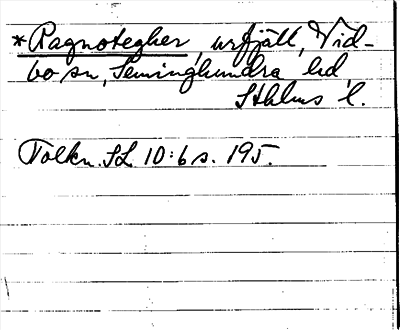 *Ragnotegher, urfjäll, Vid-
bo sn, Seminghundra hd,
Sthlms l.
Tolkn. SL 10:6 s. 195.